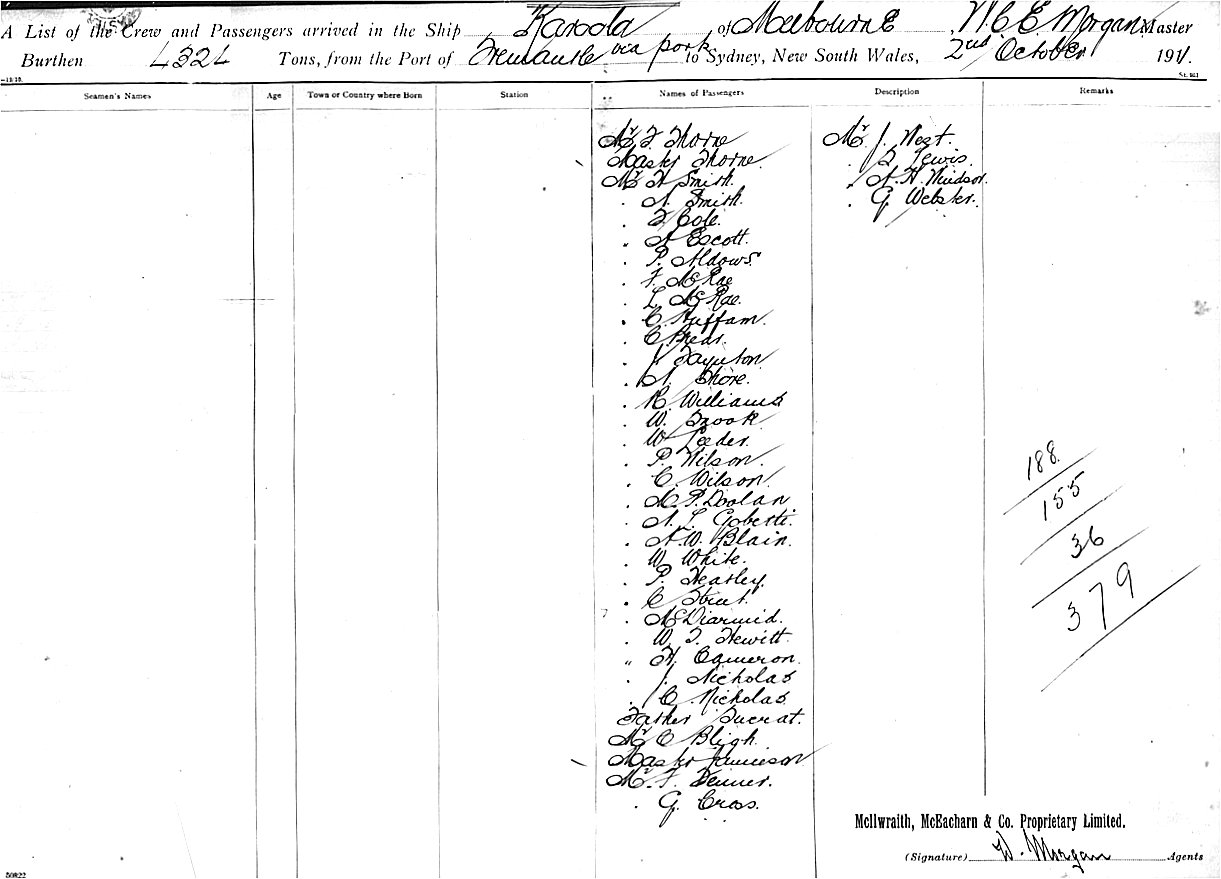 A List of the Crew and Passengers arrived in the Ship Karoola of Melbourne , W C E Morgan Master
Burthen 4324 Tons, from the Port of Fremantle via ports to Sydney, New South Wales, 2nd October 1911.
Seamen's Names Age Town or Country where Born Station Names of Passengers Description Remarks
Mr F Thorne Mr J. West.
Master Thorne . Lewis.
Mr H Smith. . A. H. Windsor.
. A. Smith. . G. Webster.
Cole.
" A Escott.
. P. Aldows.
. F. McRae
. L. McRae.
. C. Huffam.
. C.
. J. Taynton
. A. Shore.
. R. Williams
. W. Snook
. W Leeder.
. P. Wilson.
. C. Wilson.
. M. P. Doolan
. A. L. Goberti.
. A. W. Blain.
. W. White.
. P. Heatley.
. C
. McDiarmid.
. W. Hewitt.
" H. Cameron.
. J. Nicholas
. C. Nicholas
Father
Mr C Bligh.
Master Jamieson
Mr. F. Venner.
. G. Cross.
188
155
36
379
McIlwraith, McEacharn & Co. Proprietary Limited.
(Signature) W. Morgan Agents
50822